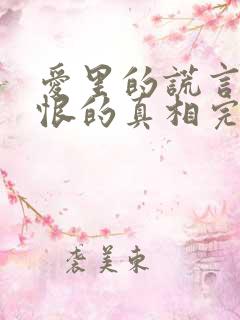 愛里的謊言
恨的真相完
袭美束